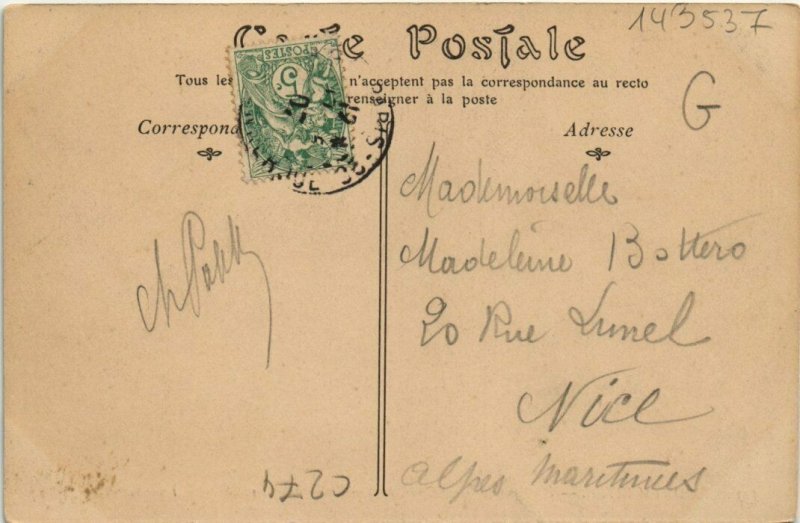 143537
Carte Postale
Tous les n'acceptent pas la correspondance au recto
renseigner à la poste
G
Correspond
Adresse
POSTES
5
PARIS
Mademoiselle
Madeleine Bottero
20 Rue Lunel
Nice
Alpes Maritimes
C274